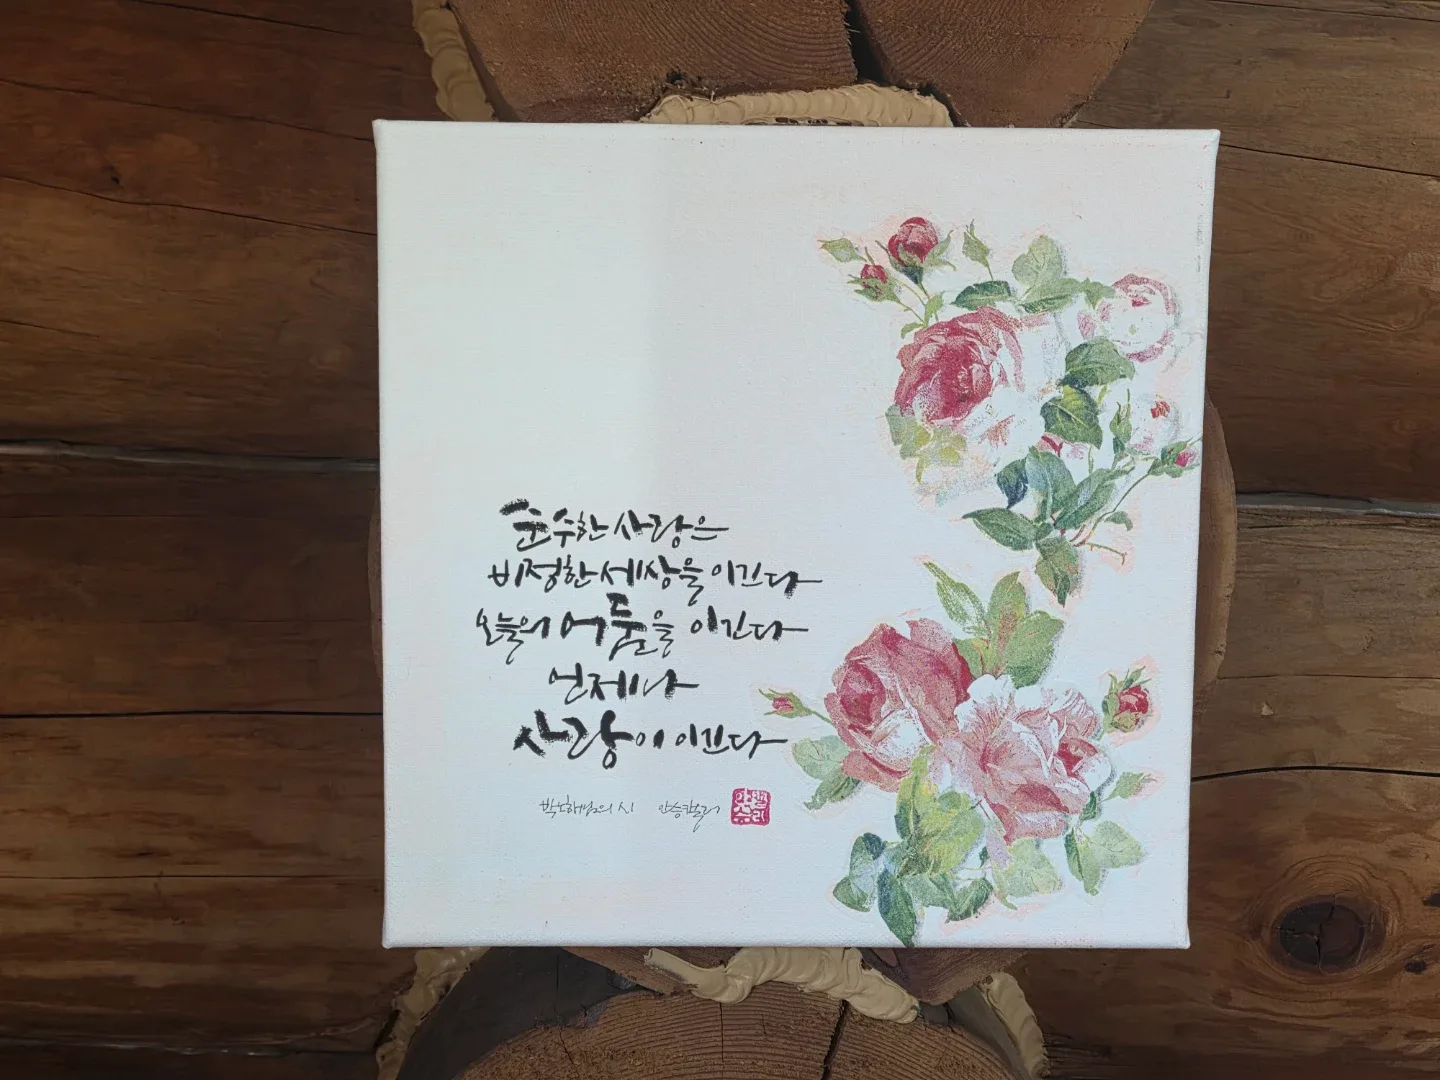 순수한 사랑은
비정한 세상을 이긴다
오늘의 어둠을 이긴다
언제나
사랑이 이긴다
박노해님의 시